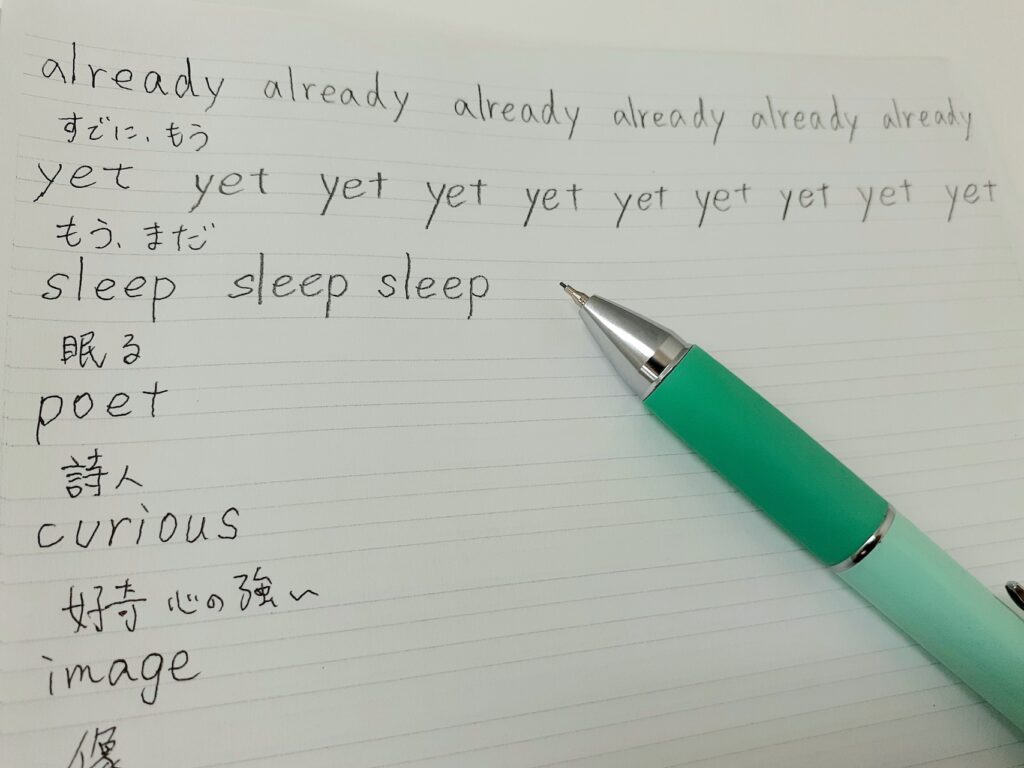 already already already already already already
すでに、もう
yet yet yet yet yet yet yet yet yet yet
もう、まだ
sleep sleep sleep
眠る
poet
詩人
curious
好奇心の強い
image
像